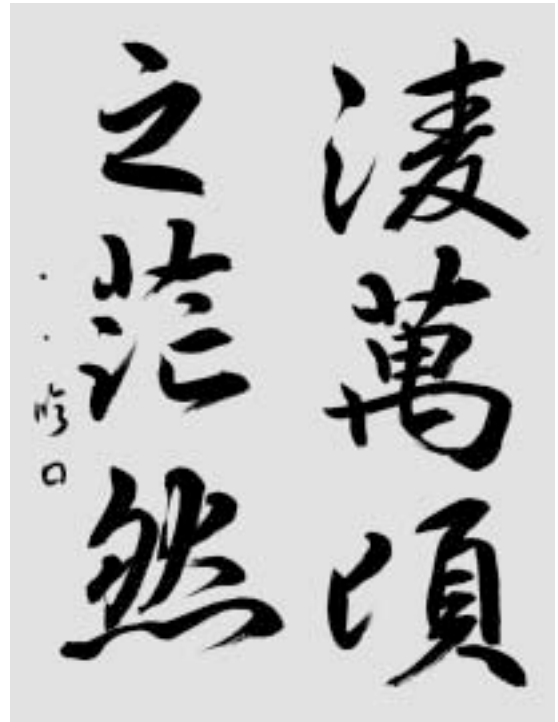 凌萬頃
之茫然
臨